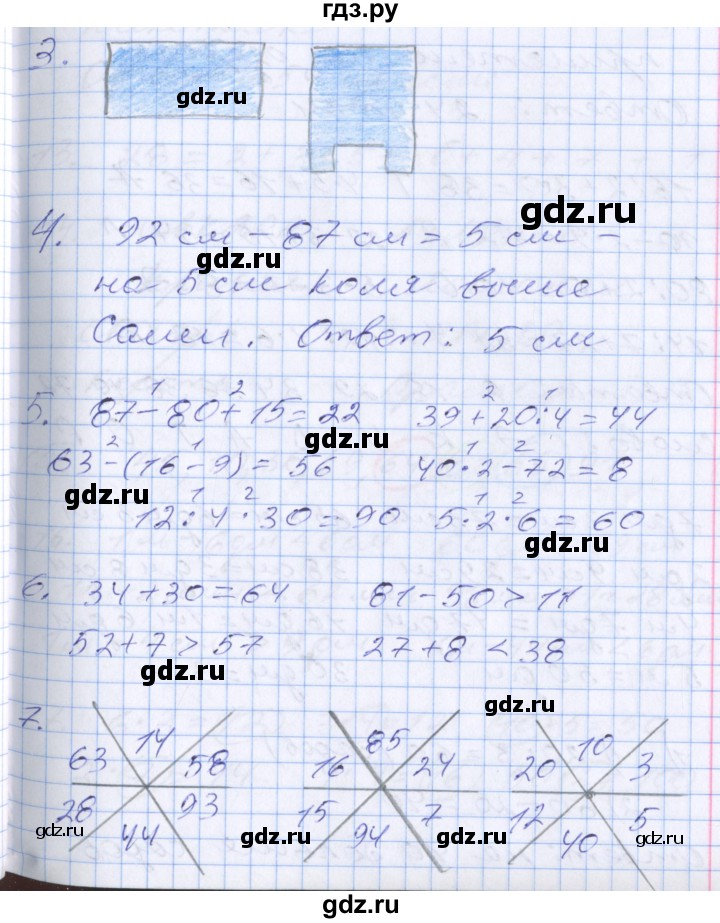 гдз.ру
3.
gdz.ru
gdz.ru
4. 92 см - 87 см = 5 см -
gdz.ru
на 5 см Коля выше
Саши. Ответ: 5 см
1 2 2 1
5. 87-80+15=22 39+20:4=44
gdz.ru
2 1 1 2
63-(16-9)=56 40·2-72=8
gdz.ru gdz.ru
1 2 1 2
12:4·30=90 5·2·6=60
gdz.ru
6. 34+30=64 81-50>11
52+7>57 27+8<38
gdz.ru
gdz.ru
7.
14 85 10
63 58 16 24 20 3
28 93 15 7 12 5
44 94 40
gdz.ru gdz.ru gdz.ru gdz.ru
gdz.ru